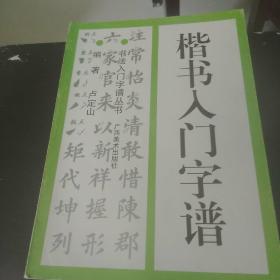 楷书入门字谱
注常怡炎清敢惜陳郡
书法入门字谱丛书
广西美术出版社
六家官来以新祥握形
编著 卢定山
矩代坤列